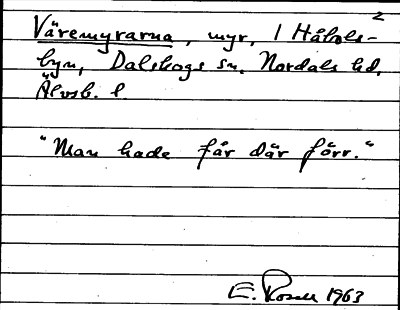 2
Väremyrarna, myr, 1 Håbols-
byn, Dalskogs sn, Nordals hd,
Älvsb. l.
"Man hade får där förr."
E. 1963